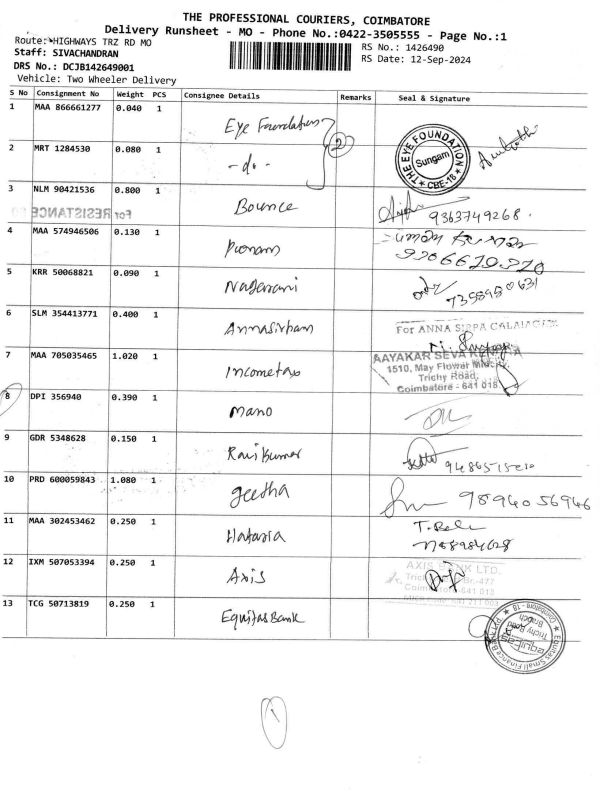 THE PROFESSIONAL COURIERS, COIMBATORE
Delivery Runsheet - MO - Phone No.:0422-3505555 - Page No.:1
Route: HIGHWAYS TRZ RD MO
RS No.: 1426490
Staff: SIVACHANDRAN
RS Date: 12-Sep-2024
DRS No.: DCJB142649001
Vehicle: Two Wheeler Delivery
S No Consignment No Weight PCS Consignee Details Remarks Seal & Signature
1 MAA 866661277 0.040 1 Eye Foundation
2
THE EYE FOUNDATION
Sungam
CBE-18
2 MRT 1284530 0.080 1 -do-
3 NLM 90421536 0.800 1 Bounce 9363749268
For RESISTANCE
4 MAA 574946506 0.130 1
5 KRR 50068821 0.090 1 Nagerani
6 SLM 354413771 0.400 1 Annasirpam
For ANNA SIRPA CALAIACOM
7 MAA 705035465 1.020 1 Incometax
AAYAKAR SEVA
1510, May Flower
Trichy Road,
Coimbatore - 641 018
8 DPI 356940 0.390 1 Mano
9 GDR 5348628 0.150 1 Ravikumar
10 PRD 600059843 1.080 1 geetha 9894056946
11 MAA 302453462 0.250 1
12 IXM 507053394 0.250 1 Axis
AXIS BANK LTD.
Coimbatore - 641 018
13 TCG 50713819 0.250 1 Equitas Bank
Equitas Small Finance Bank
Trichy Road
Branch
Coimbatore - 18
1